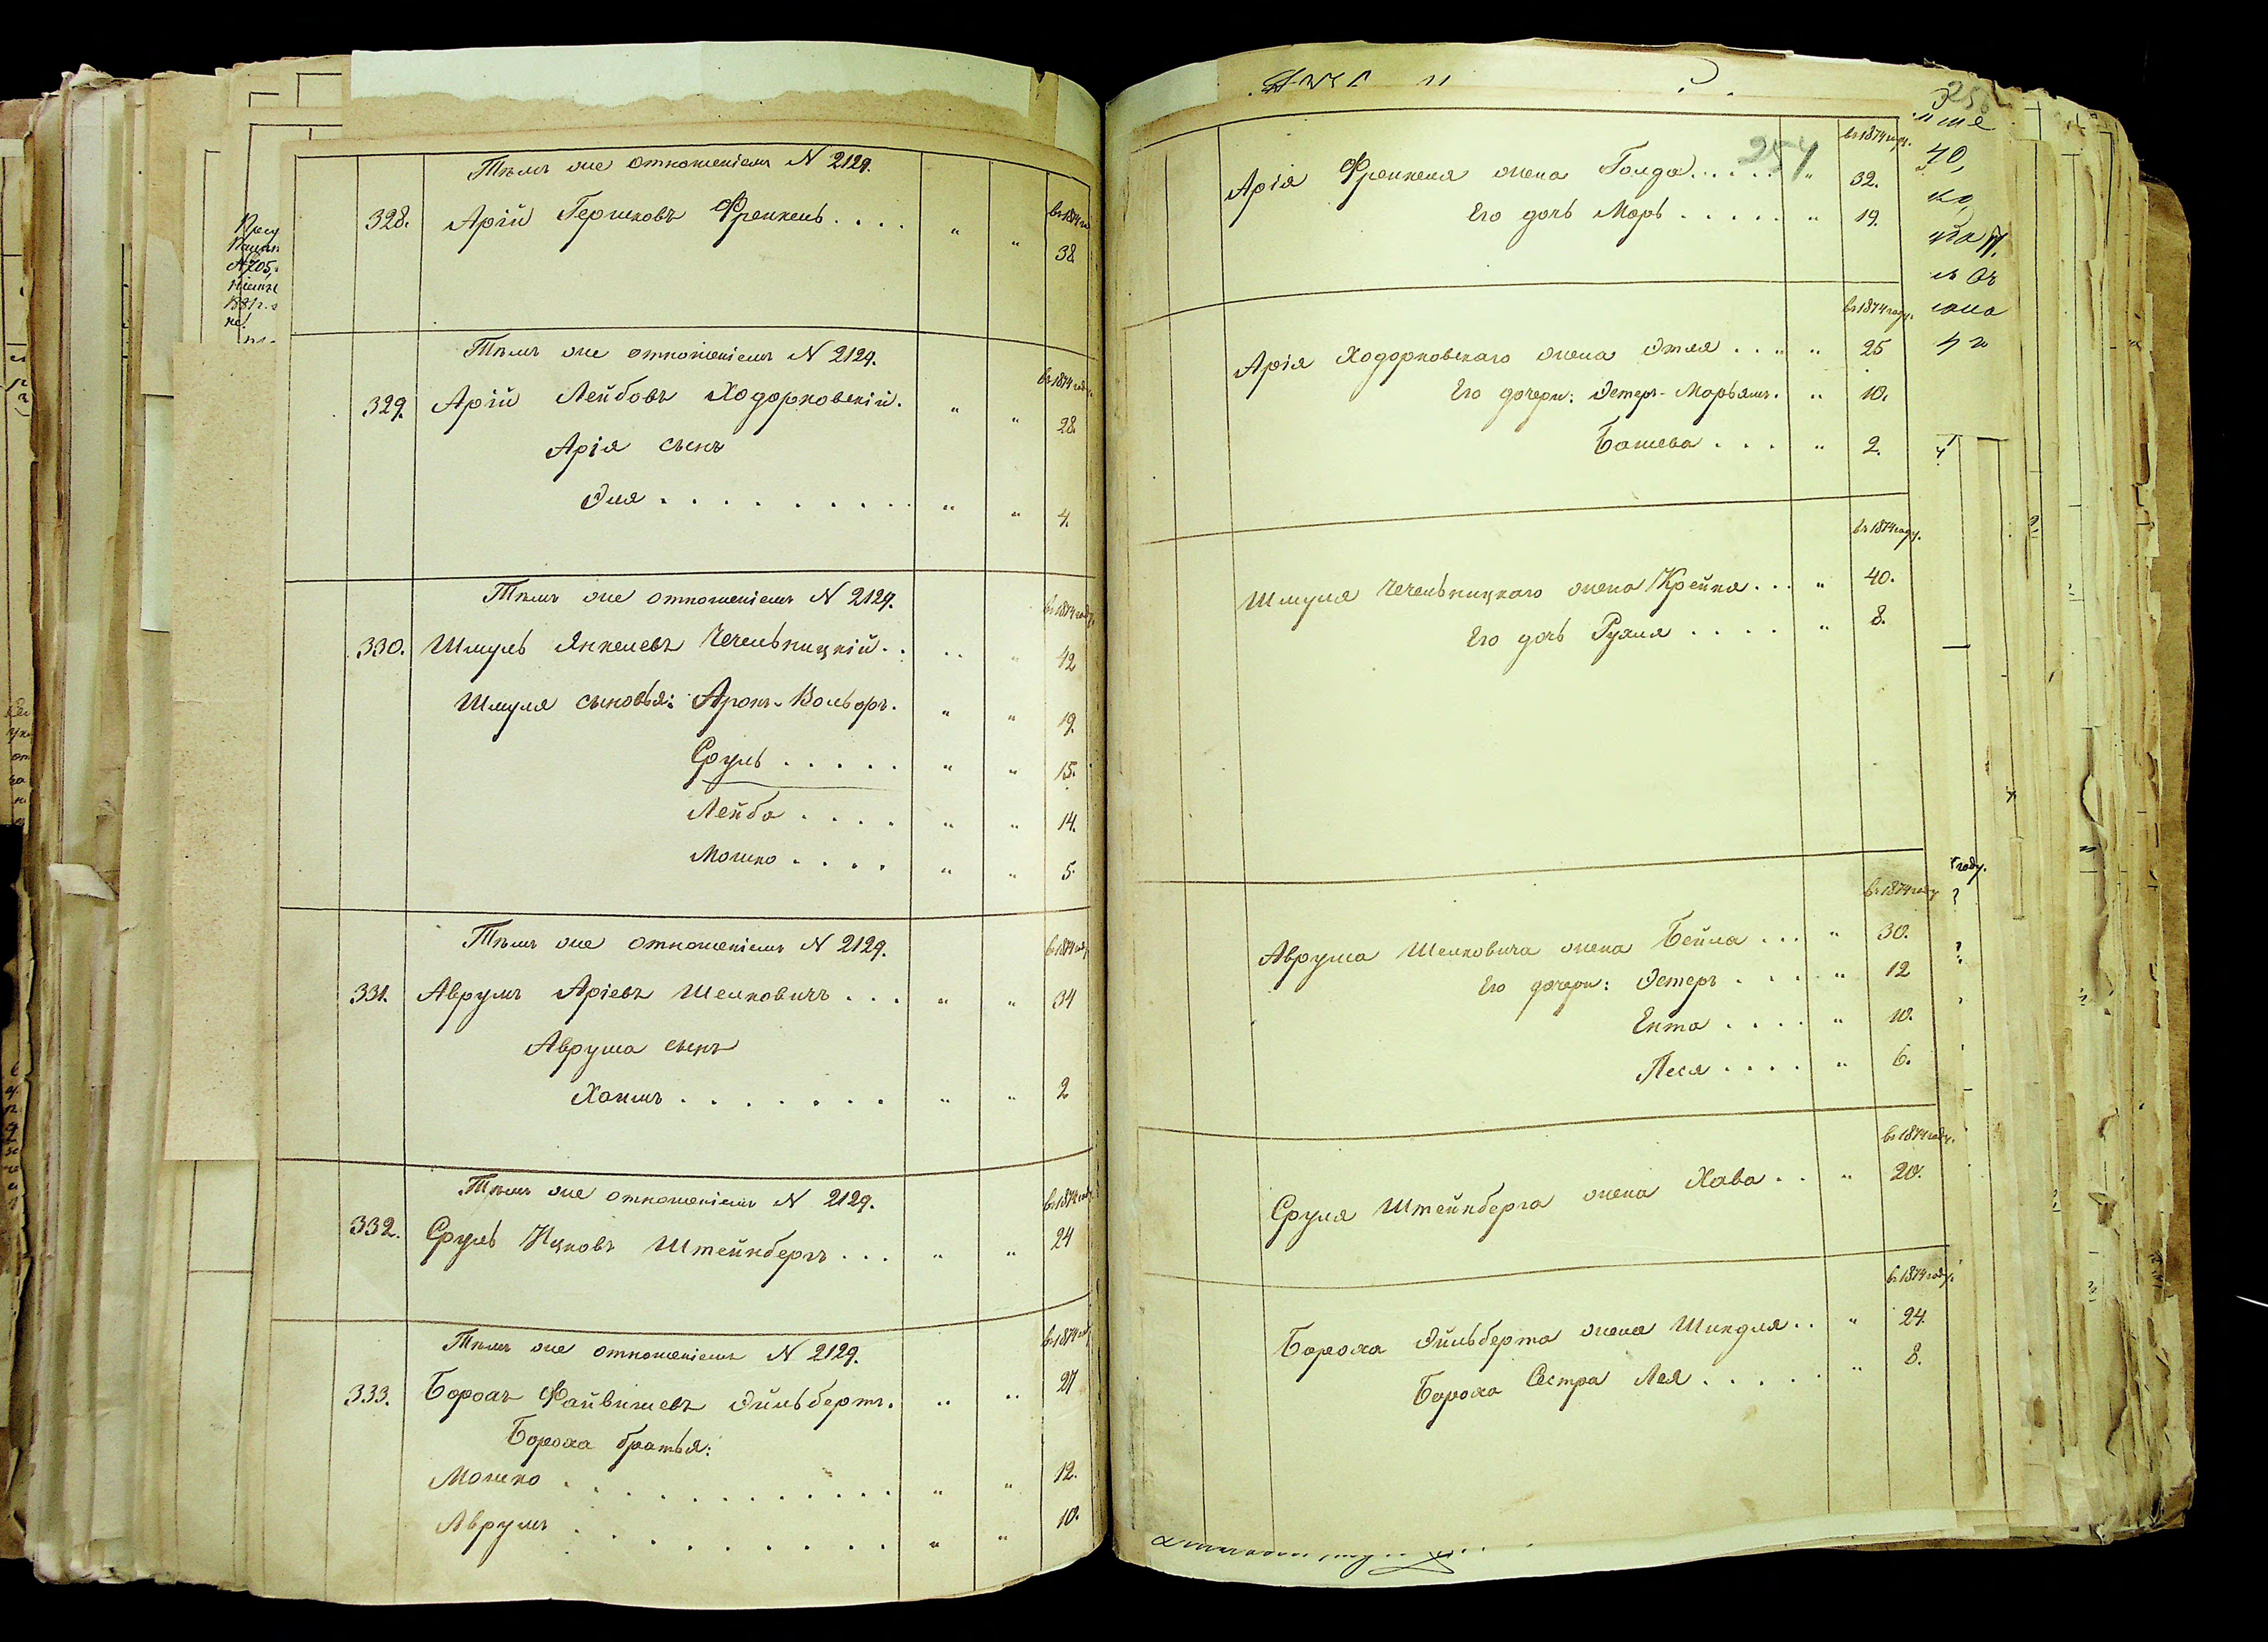 Тѣмъ же отношеніемъ N 2129.
въ 1874 г
328. Арій Гершковъ Френкель . . . . " " 38
Тѣмъ же отношеніемъ N 2129.
въ 1874 году.
329. Арій Лейбовъ Ходорковскій. " " 28.
Арія сынъ
Эля . . . . . . . . . " " 4.
Тѣмъ же отношеніемъ N 2129.
въ 1874 году.
330. Шмуль Янкелевъ Чечельницкій . . " " 42
Шмуля сыновья: Аронъ-Вольфъ. " " 19.
Сруль . . . . . " " 15.
Лейба . . . . " " 14.
Мошко . . . . " " 5.
Тѣмъ же отношеніемъ N 2129.
въ 1874 году
331. Аврумъ Аріевъ Шелковичъ . . . " " 34
Аврума сынъ
Хаимъ . . . . . . . " " 2
Тѣмъ же отношеніемъ N 2129.
въ 1874 году.
332. Сруль Ицковъ Штейнбергъ . . . " " 24
Тѣмъ же отношеніемъ N 2129.
въ 1874 году
333. Борохъ Файвишевъ Эйльбертъ. " " 27
Бороха братья:
Мошко . . . . . . . . . . . " " 12.
Аврумъ . . . . . . . . . " " 10.
254
въ 1874 году.
Арія Френкеля жена Голда . . . . . " 32.
Его дочь Марь . . . . . " 19.
въ 1874 году.
Арія Ходорковскаго жена Этля . . . " 25
Его дочери: Эстеръ-Марьямъ. " 10.
Башева . . . " 2.
въ 1874 году.
Шмуля Чечельницкаго жена Крейна . . . " 40.
Его дочь Рухля . . . . " 8.
въ 1874 году
Аврума Шелковича жена Бейла . . . " 30.
Его дочери: Эстеръ . . . . " 12
Ента . . . . " 10.
Песя . . . . " 6.
въ 1874 году.
Сруля Штейнберга жена Хава . . " 20.
въ 1874 году.
Бороха Эйльберта жена Шиндля . . " 24.
Бороха Сестра Лея . . . . . " 8.